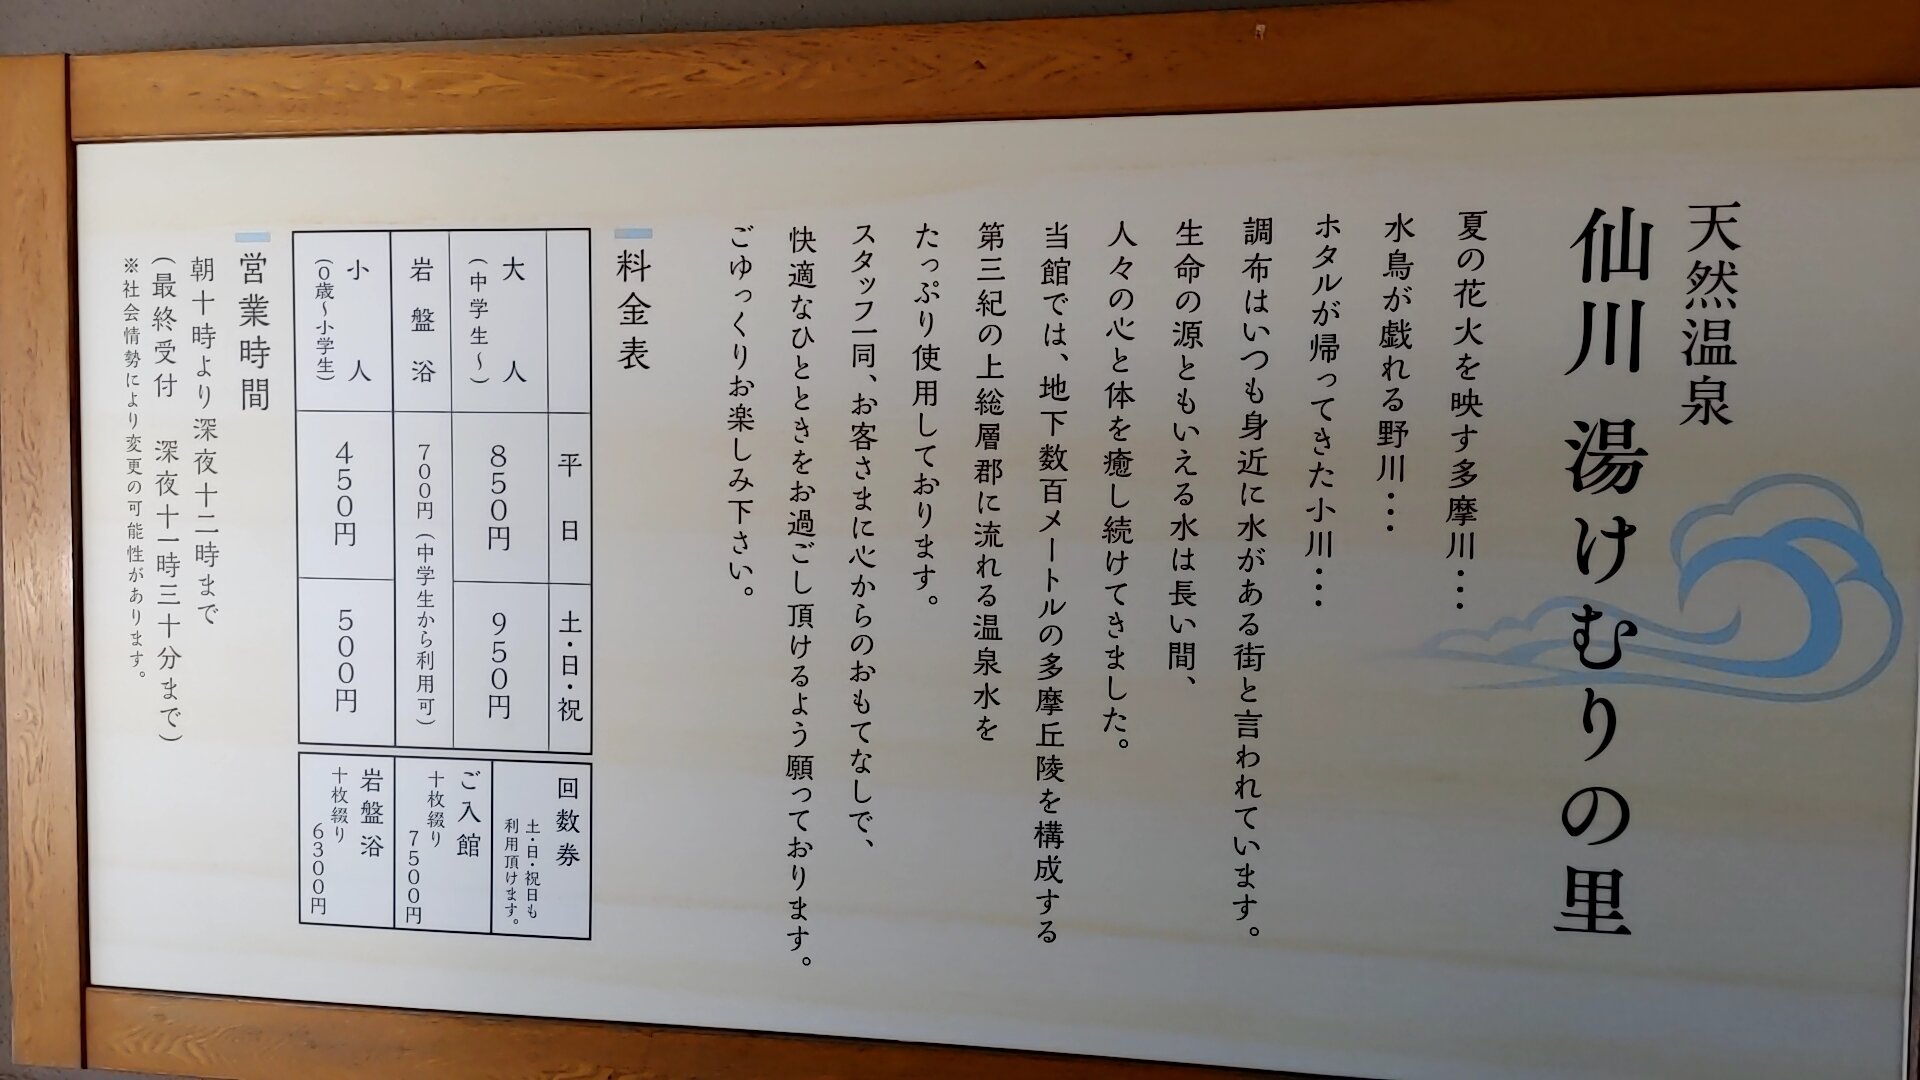 天然温泉
仙川 湯けむりの里
夏の花火を映す多摩川・・・
水鳥が戯れる野川・・・
ホタルが帰ってきた小川・・・
調布はいつも身近に水がある街と言われています。
生命の源ともいえる水は長い間、
人々の心と体を癒し続けてきました。
当館では、地下数百メートルの多摩丘陵を構成する
第三紀の上総層郡に流れる温泉水を
たっぷり使用しております。
スタッフ一同、お客さまに心からのおもてなしで、
快適なひとときをお過ごし頂けるよう願っております。
ごゆっくりお楽しみ下さい。
料金表
平日
土・日・祝
大人
(中学生〜)
850円
950円
岩盤浴
700円(中学生から利用可)
小人
(0歳〜小学生)
450円
500円
回数券
土・日・祝日も
利用頂けます。
ご入館
十枚綴り
7500円
岩盤浴
十枚綴り
6300円
営業時間
朝十時より深夜十二時まで
(最終受付 深夜十一時三十分まで)
※社会情勢により変更の可能性があります。